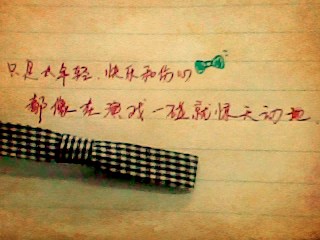 只是太年轻，快乐和伤心
都像在演戏 一碰就惊天动地.